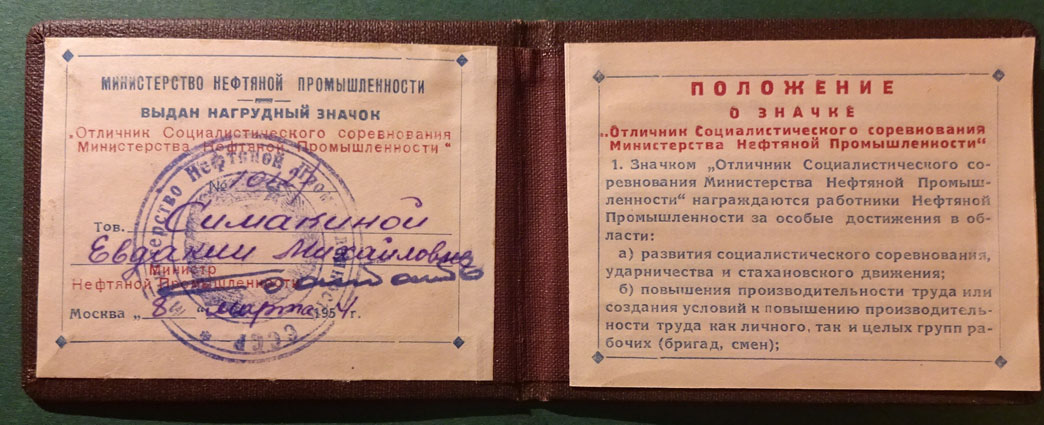 МИНИСТЕРСТВО НЕФТЯНОЙ ПРОМЫШЛЕННОСТИ
ВЫДАН НАГРУДНЫЙ ЗНАЧОК
„Отличник Социалистического соревнования
Министерства Нефтяной Промышленности"
№
Тов. Симакиной
Евдакии Михайловне
Министр
Нефтяной Промышленности
Москва „8" марта 1954 г.
Министерство Нефтяной Промышленности
СССР
ПОЛОЖЕНИЕ
О ЗНАЧКЕ
„Отличник Социалистического соревнования
Министерства Нефтяной Промышленности"
1. Значком „Отличник Социалистического со-
ревнования Министерства Нефтяной Промыш-
ленности" награждаются работники Нефтяной
Промышленности за особые достижения в об-
ласти:
а) развития социалистического соревнования,
ударничества и стахановского движения;
б) повышения производительности труда или
создания условий к повышению производитель-
ности труда как личного, так и целых групп ра-
бочих (бригад, смен);